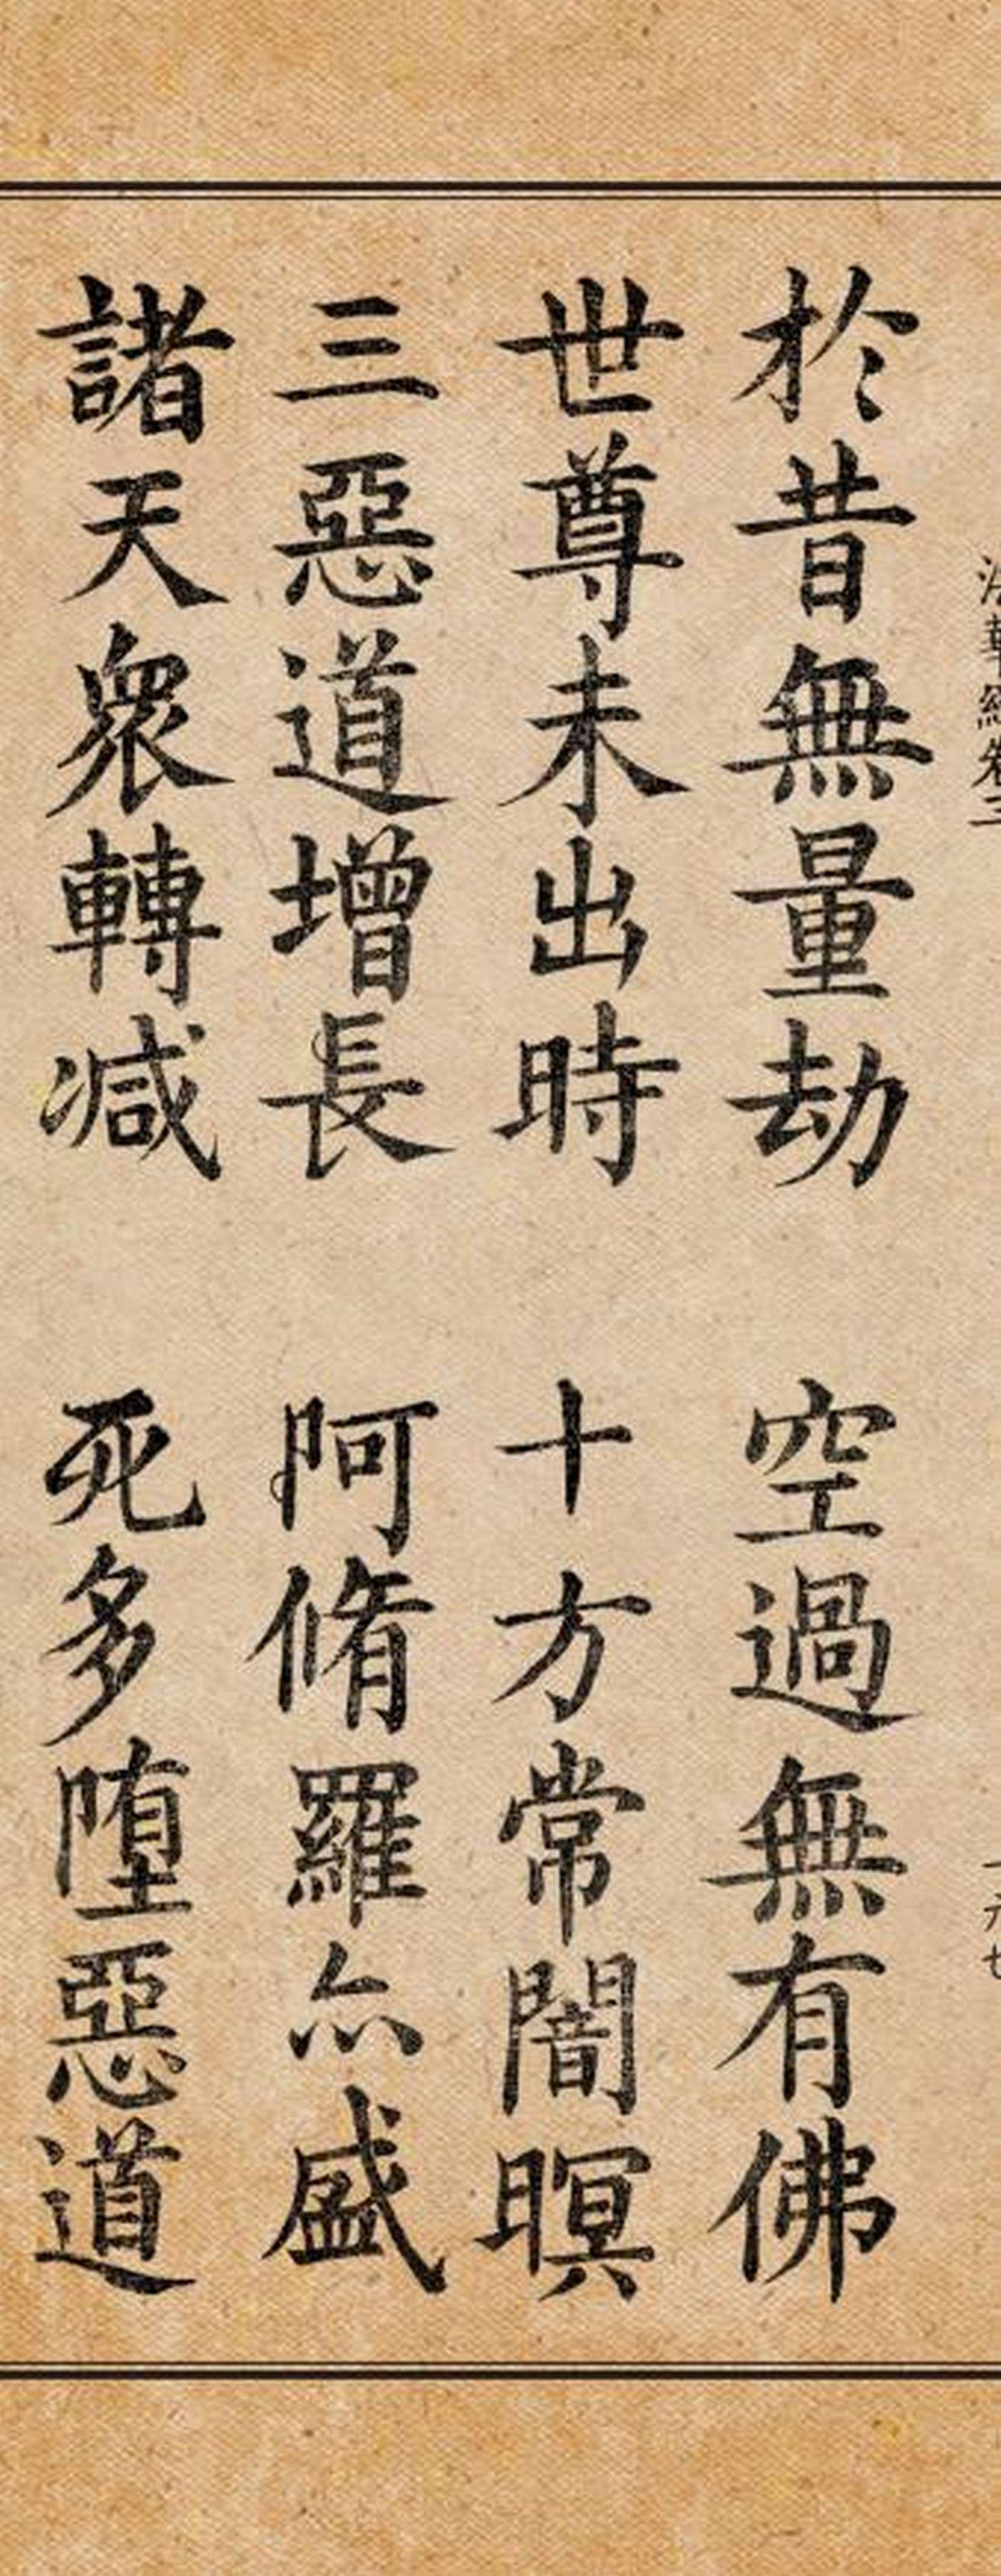 法華經卷三
於昔無量劫 空過無有佛
世尊未出時 十方常闇暝
三惡道增長 阿脩羅亦盛
諸天衆轉减 死多墮惡道